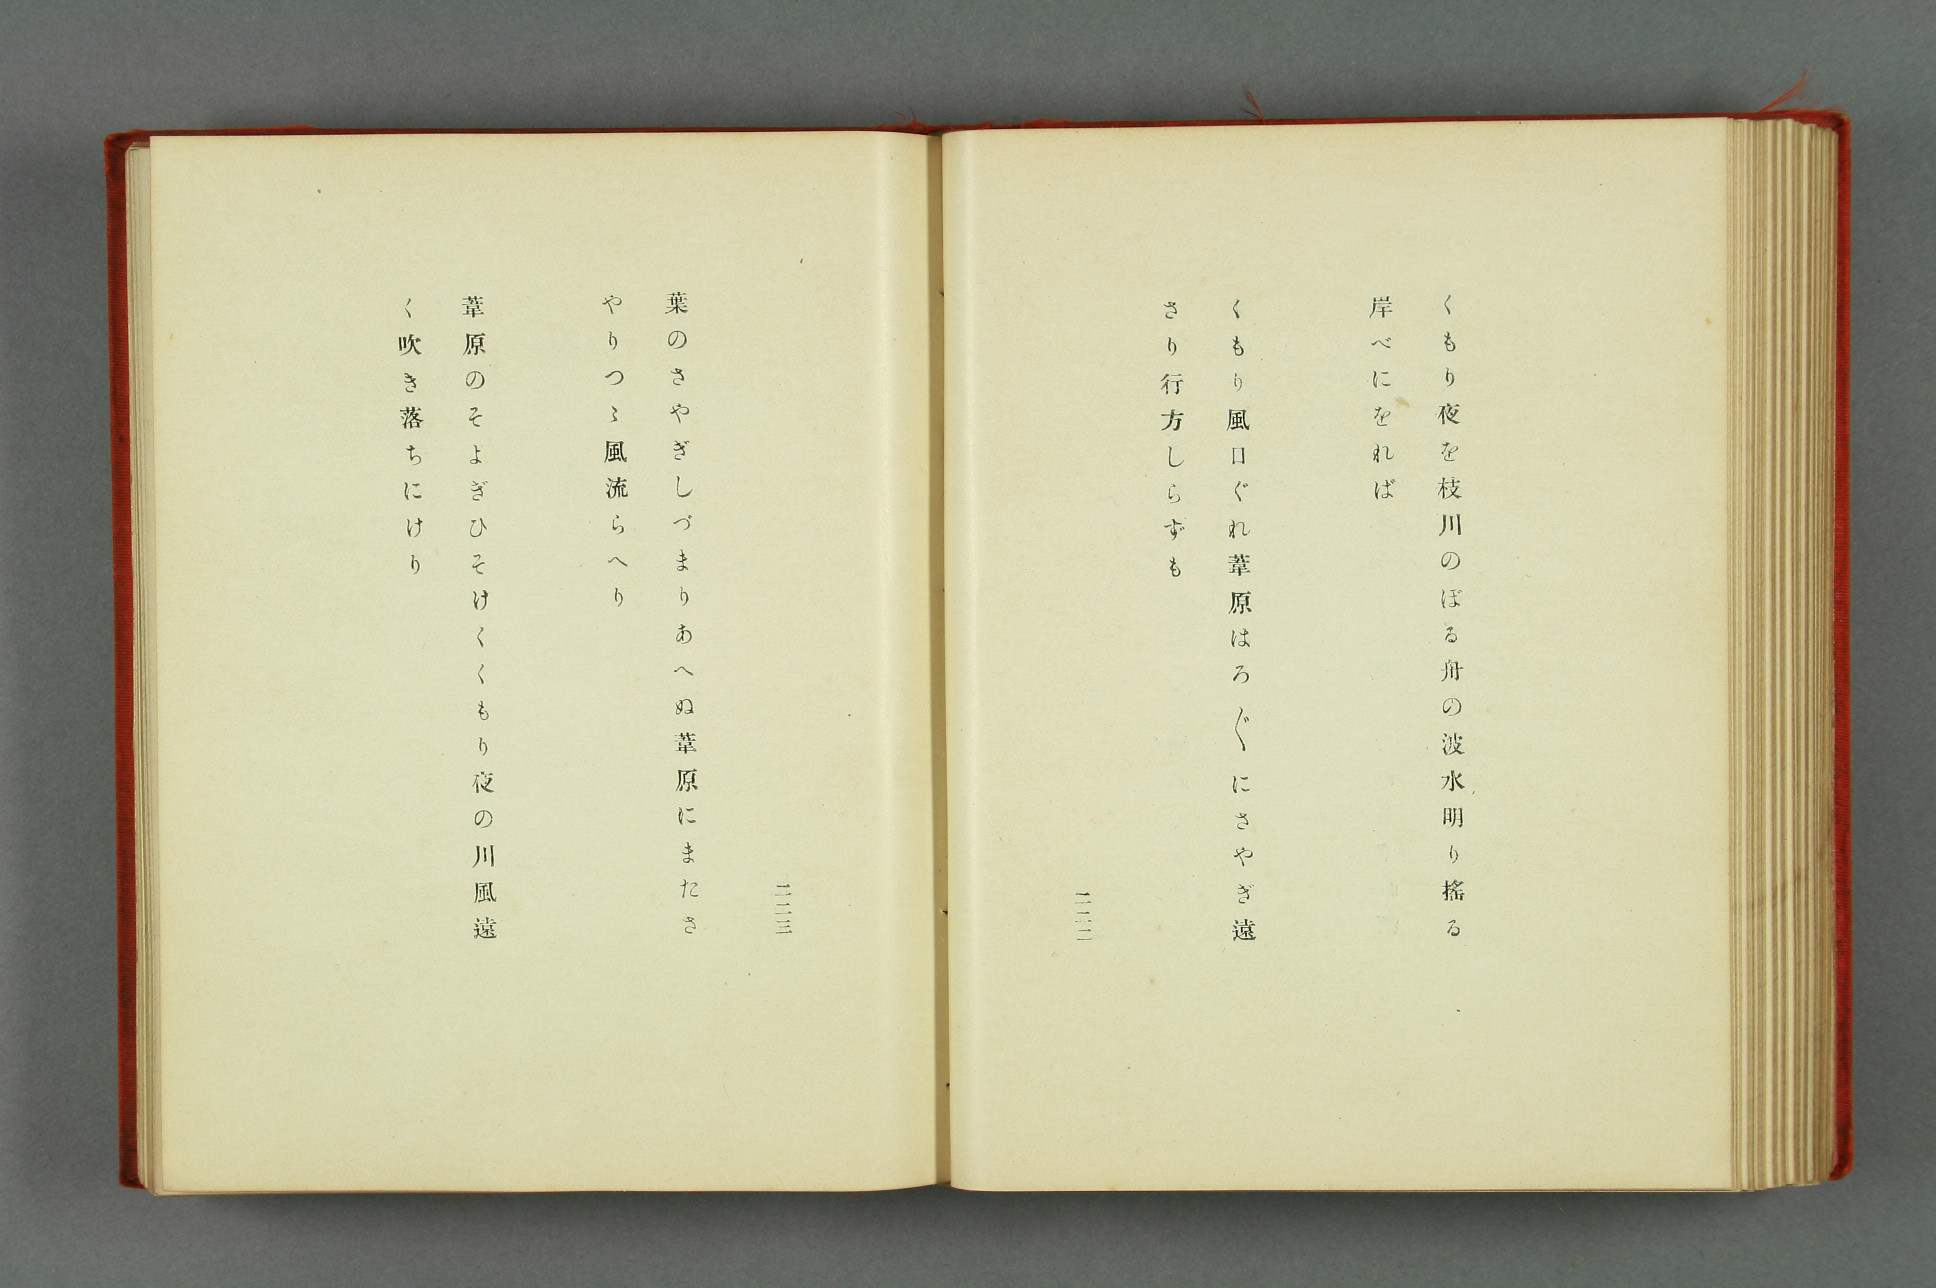 くもり夜を枝川のぼる舟の波水明り搖る
岸べにをれば
くもり風口ぐれ葦原はろ〴〵にさやぎ遠
さり行方しらずも
二二二
二二三
葉のさやぎしづまりあへぬ葦原にまたさ
やりつゝ風流らへり
葦原のそよぎひそけくくもり夜の川風遠
く吹き落ちにけり